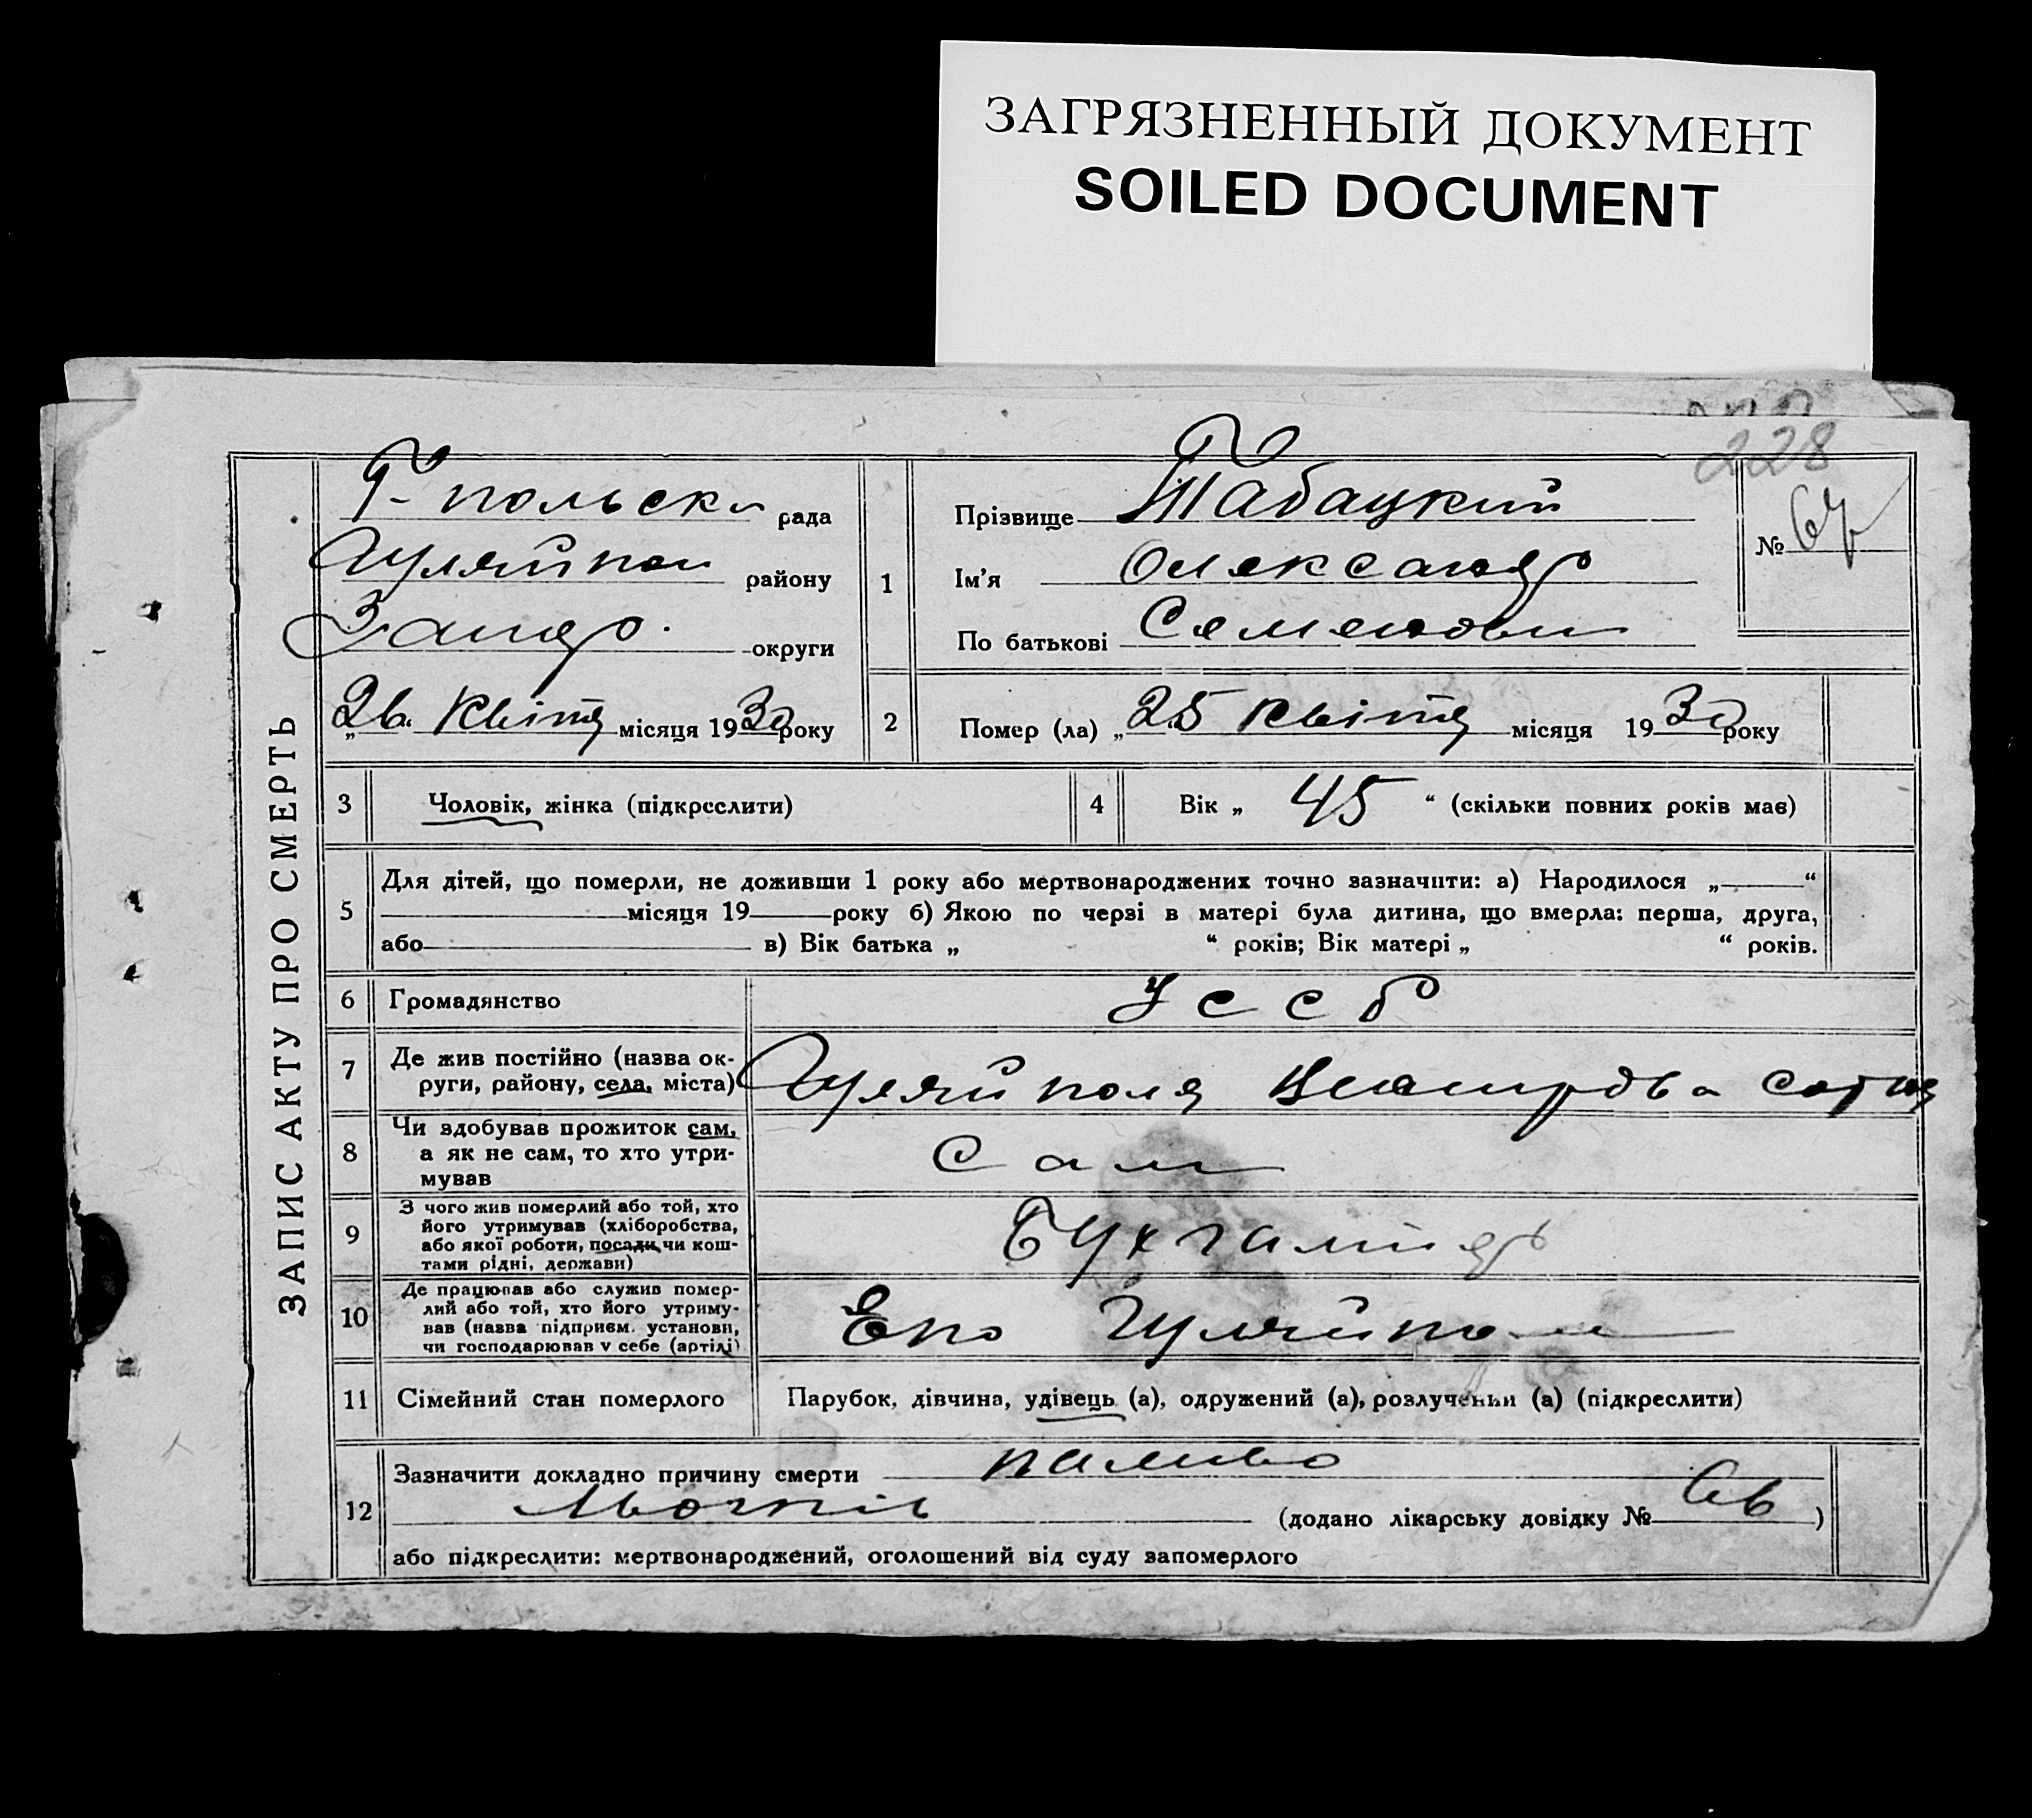 ЗАГРЯЗНЕННЫЙ ДОКУМЕНТ
SOILED DOCUMENT
228
ЗАПИС АКТУ ПРО СМЕРТЬ
Г-польска рада
Гуляйпол району
Запор. округи
„26“ Квітня місяця 1930 року
1
Прізвище Табацкий
Ім'я Олександр
По батькові Семенович
№ 67
2
Помер (ла) „25 Квітня місяця 1930 року
3 Чоловік, жінка (підкреслити)
4 Вік „ 45 “ (скільки повних років має)
5 Для дітей, що померли, не доживши 1 року або мертвонароджених точно зазначити: а) Народилося „ “
місяця 19 року б) Якою по черзі в матері була дитина, що вмерла: перша, друга,
або в) Вік батька „ “ років; Вік матері „ “ років.
6 Громадянство УССР
7 Де жив постійно (назва ок-
руги, району, села, міста) Гуляйполя
8 Чи здобував прожиток сам,
а як не сам, то хто утри-
мував
Сам
9 З чого жив померлий або той, хто
його утримував (хліборобства,
або якої роботи, посади чи кош-
тами рідні, держави)
Бухгалтер
10 Де працював або служив помер-
лий або той, хто його утриму-
вав (назва підприєм. установи,
чи господарював у себе (артілі)
Епо Гуляйполе
11 Сімейний стан померлого
Парубок, дівчина, удівець (а), одружений (а), розлучений (а) (підкреслити)
12 Зазначити докладно причину смерти
(додано лікарську довідку № 66)
або підкреслити: мертвонароджений, оголошений від суду запомерлого